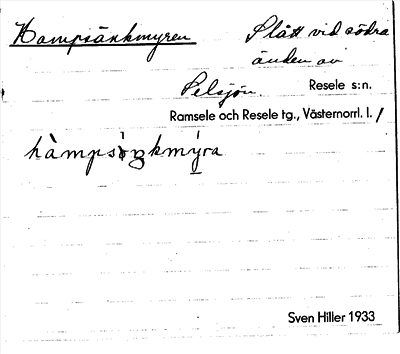 Hampsänkmyren
Slått vid södra
änden av
Selsjön. Resele s:n.
Ramsele och Resele tg., Västernorrl. l. /
hàmpsìŋkmy̆ra
Sven Hiller 1933